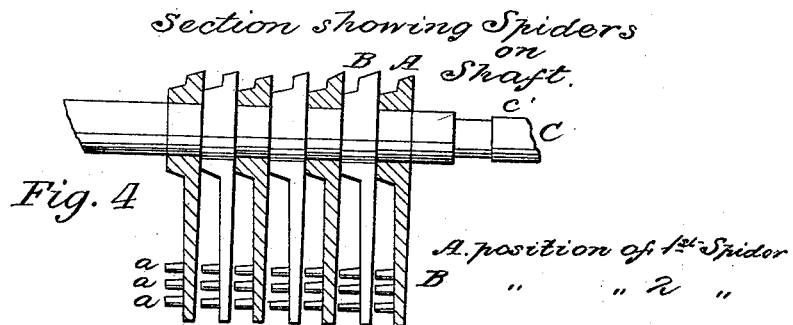 Section showing Spiders
on
Shaft.
B A
C' C
Fig. 4
a
a
a
A. position of 1st Spider
B " " 2 "